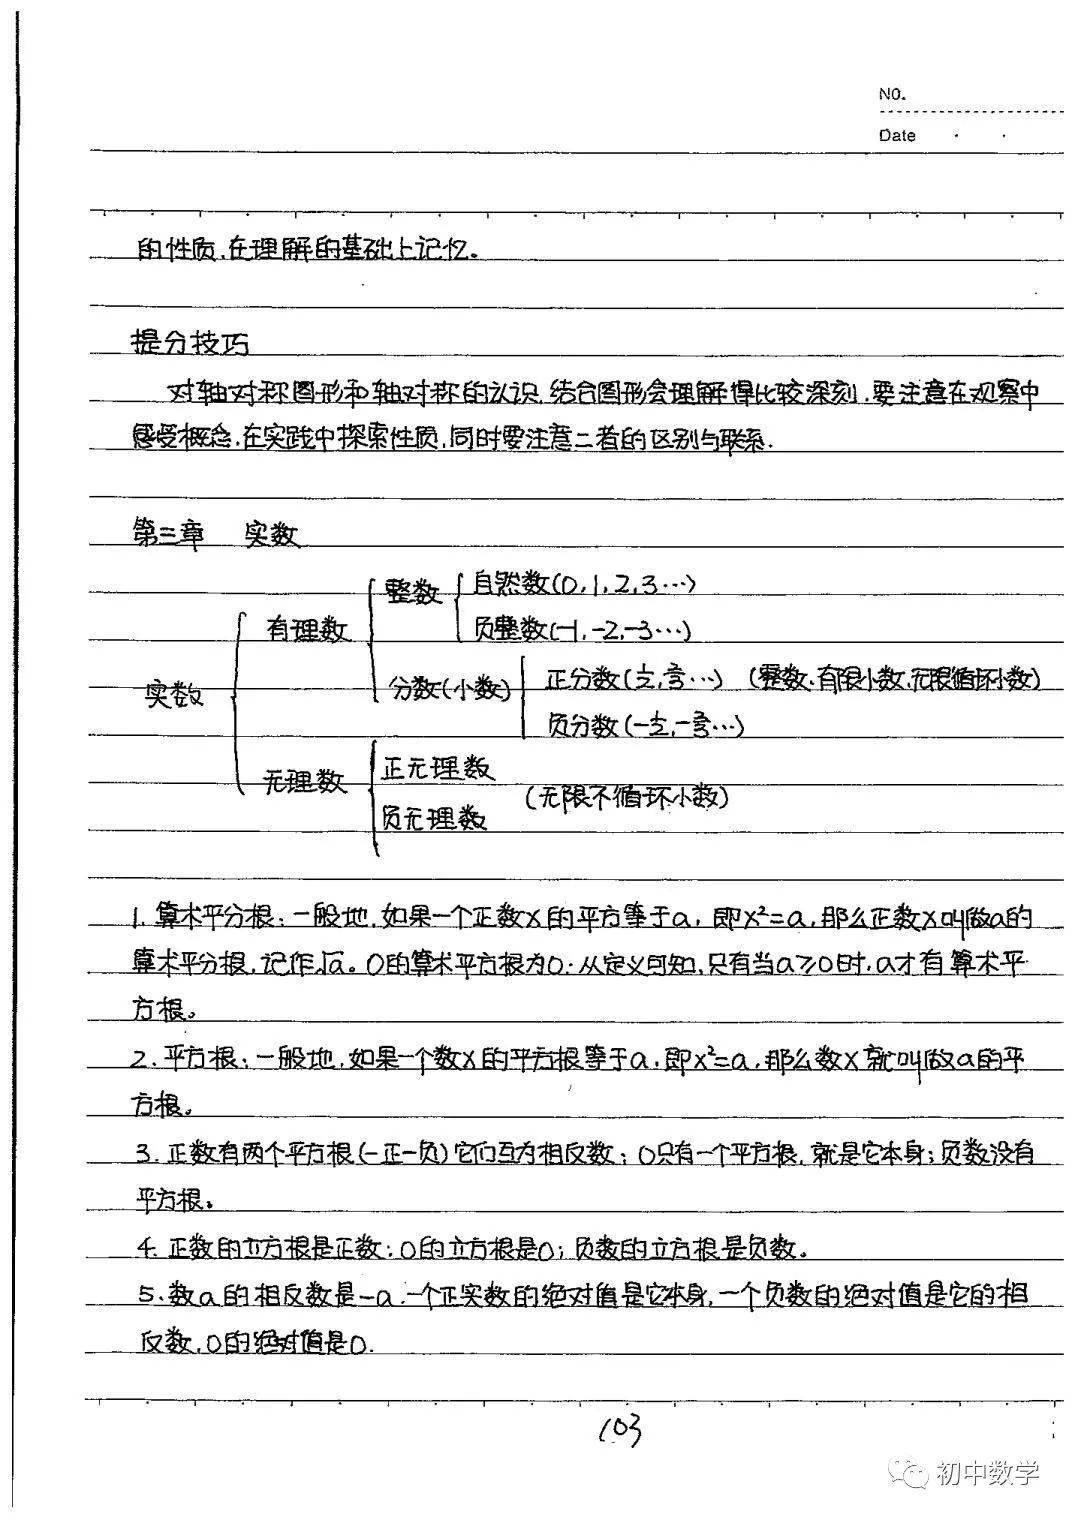 NO.
Date
的性质,在理解的基础上记忆。
提分技巧
对轴对称图形和轴对称的认识,结合图形会理解得比较深刻,要注意在观察中
感受概念,在实践中探索性质,同时要注意二者的区别与联系.
第三章 实数
实数
有理数
整数
自然数(0,1,2,3…)
负整数(-1,-2,-3…)
分数(小数)
正分数(½,⅓…) (整数、有限小数、无限循环小数)
负分数(-½,-⅓…)
无理数
正无理数
负无理数
(无限不循环小数)
1. 算术平分根:一般地,如果一个正数x的平方等于a,即x²=a,那么正数x叫做a的
算术平分根,记作√a。0的算术平方根为0.从定义可知,只有当a≥0时,a才有算术平
方根。
2. 平方根:一般地,如果一个数x的平方根等于a,即x²=a,那么数x就叫做a的平
方根。
3. 正数有两个平方根(一正一负)它们互为相反数;0只有一个平方根,就是它本身;负数没有
平方根。
4. 正数的立方根是正数;0的立方根是0;负数的立方根是负数。
5. 数a的相反数是-a.一个正实数的绝对值是它本身,一个负数的绝对值是它的相
反数,0的绝对值是0.
103
初中数学